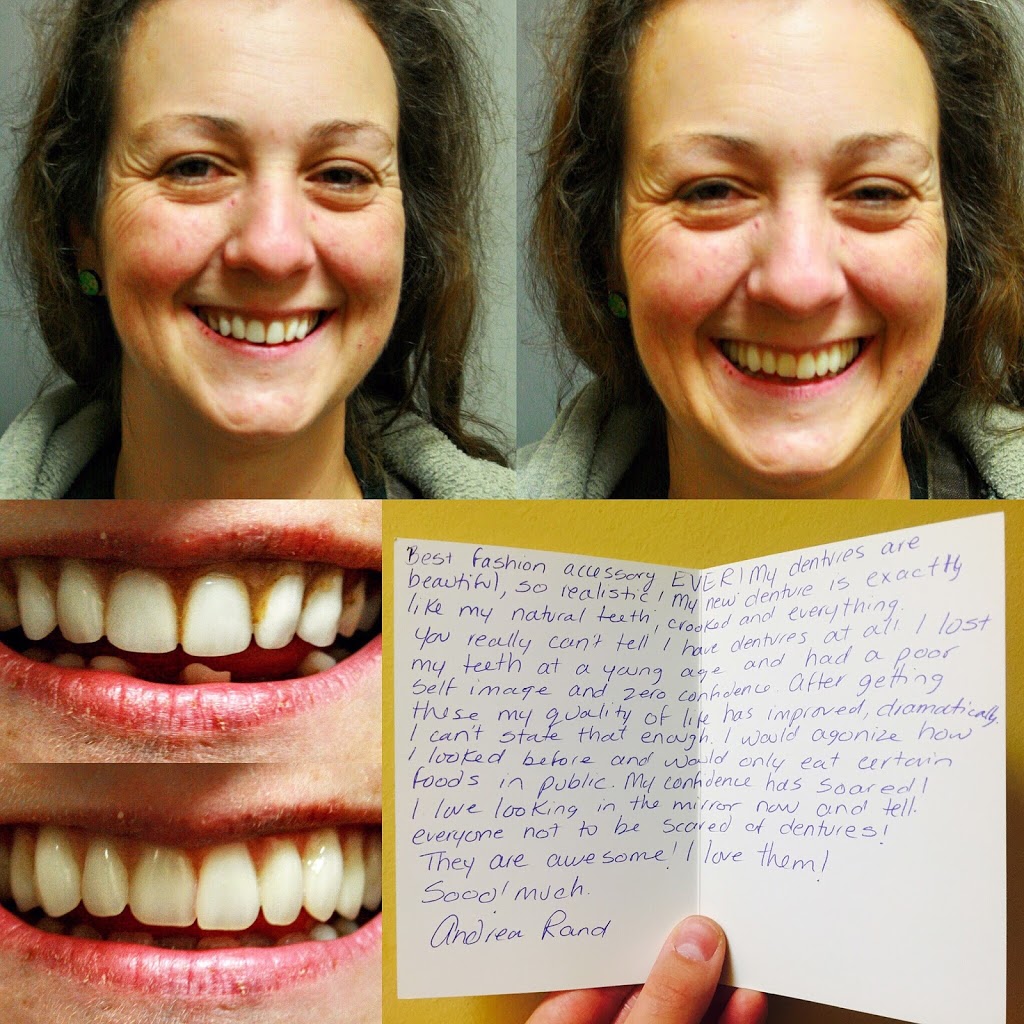 Best fashion accessory EVER! My dentures are
beautiful, so realistic! My new denture is exactly
like my natural teeth, crooked and everything.
You really can't tell I have dentures at all! I lost
my teeth at a young age and had a poor
self image and zero confidence. After getting
these my quality of life has improved, dramatically.
I can't state that enough. I would agonize how
I looked before and would only eat certain
foods in public. My confidence has soared!
I love looking in the mirror now and tell
everyone not to be scared of dentures!
They are awesome! I love them!
Sooo! much.
Andrea Rand